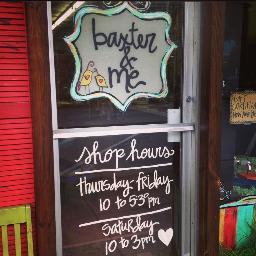 baxter
&
me
shop hours
Thursday-Friday
10 to 5:30pm
Saturday
10 to 3pm